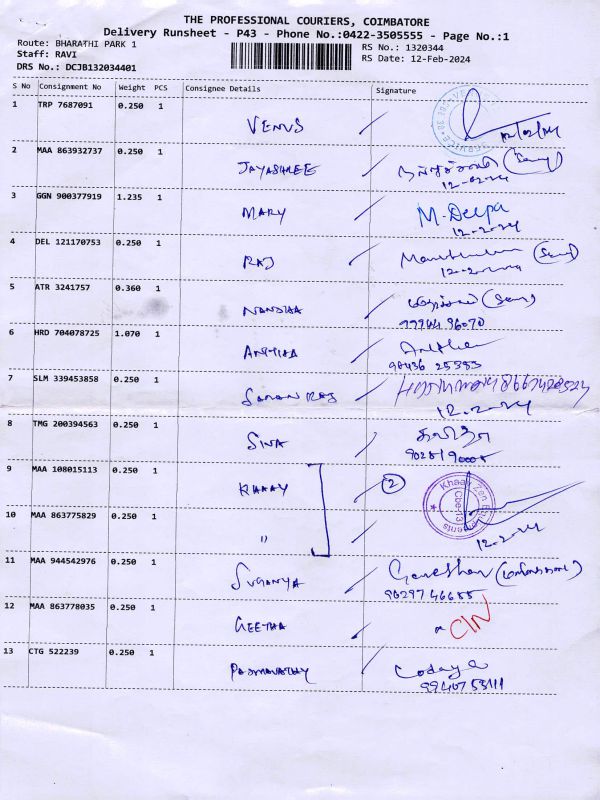 THE PROFESSIONAL COURIERS, COIMBATORE
Delivery Runsheet - P43 - Phone No.:0422-3505555 - Page No.:1
Route: BHARATHI PARK 1
RS No.: 1320344
Staff: RAVI
RS Date: 12-Feb-2024
DRS No.: DCJB132034401
S No Consignment No Weight PCS Consignee Details Signature
1 TRP 7687091 0.250 1
VENUS 12/02/24
2 MAA 863932737 0.250 1
JAYASHREE
12-02-24
3 GGN 900377919 1.235 1
MARY M. Deepa
12-2-24
4 DEL 121170753 0.250 1
RAJ
5 ATR 3241757 0.360 1
NANDHA
99944 96070
6 HRD 704078725 1.070 1
ANITHA Anitha
98436 25393
7 SLM 339453858 0.250 1
SARAN RAJ
12.2.24
8 TMG 200394563 0.250 1
SIVA
9 MAA 108015113 0.250 1
KHAAY 2
Khaay Zen
Cbe-13
10 MAA 863775829 0.250 1
" 12-2-24
11 MAA 944542976 0.250 1
SUGANYA Ganeshan
90297 46655
12 MAA 863778035 0.250 1
GEETHA CIN
13 CTG 522239 0.250 1
PADMAVATHY
99407 53111